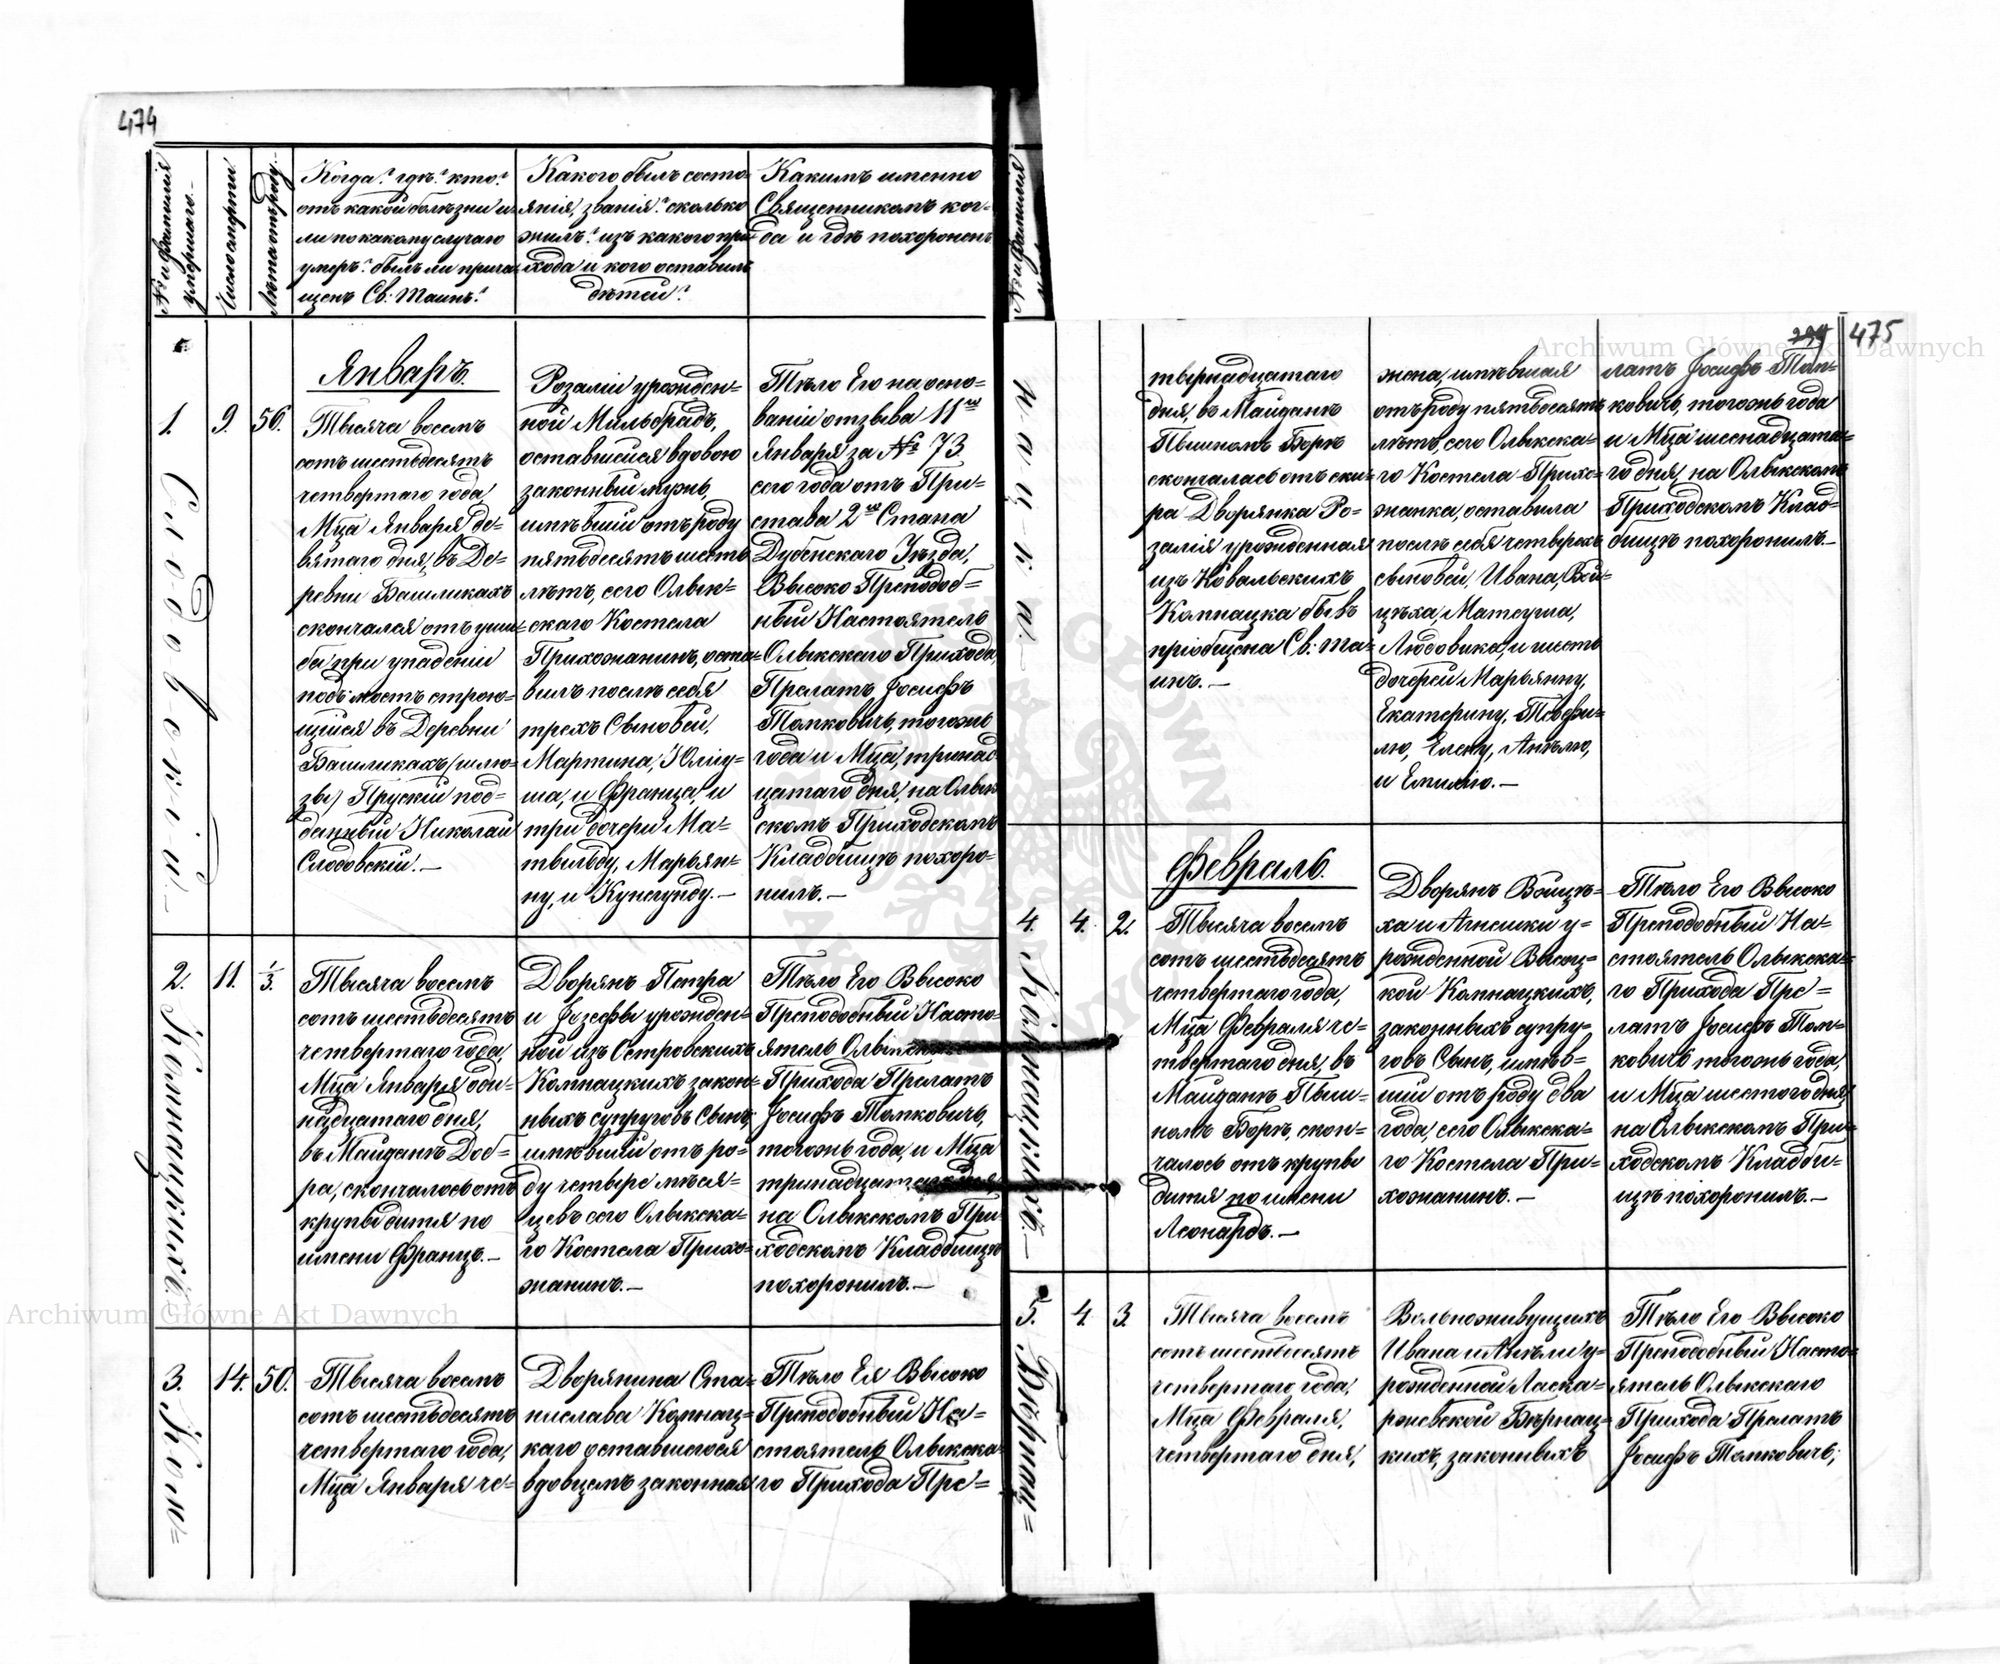 474
№ и фамилія умершаго.
Число смерти.
Лѣта отъ роду.
Когда? гдѣ? кто?
отъ какой болѣзни и=
ли по какому случаю
умеръ? былъ ли прича=
щенъ Св: Таинъ?
Какого былъ состо=
янія, званія? сколько
жилъ? изъ какого при=
хода и кого оставилъ
дѣтей?
Какимъ именно
Священникомъ ког=
да и гдѣ похороненъ
1.
Слодовскій.—
9.
56.
Январь.
Тысяча восемъ
сотъ шестьдесятъ
четвертаго года,
Мца Января де=
вятаго дня, въ Де=
ревни Башликахъ
скончался отъ уши=
ба при упаденіи
подъ мостъ строю=
щійся въ Деревни
Башликахъ /шлю=
зы/ Прускій под=
данный Николай
Слодовскій.—
Розаліи урожден=
ной Мильбрадъ,
оставшейся вдовою
законный мужъ,
имѣвшій отъ роду
пятьдесятъ шесть
лѣтъ, сего Олык=
скаго Костела
Прихожанинъ, оста=
вилъ послѣ себя
трехъ Сыновей,
Мартина, Юлiу=
ша, и Франца, и
три дочери Ма=
тильду, Марьян=
ну, и Кунегунду.—
Тѣло Его на осно=
ваніи отзыва 11го
Января за № 73.
сего года отъ При=
става 2го Стана
Дубенскаго Уѣзда,
Высоко Преподоб=
ный Настоятель
Олыкскаго Прихода,
Прелатъ Іосифъ
Томковичъ, тогожъ
года и Мца, тринад=
цатаго дня, на Олык=
скомъ Приходскомъ
Кладбищѣ похоро=
нилъ.—
2.
Компацкихъ.
11.
1/3.
Тысяча восемъ
сотъ шестьдесятъ
четвертаго года,
Мца Января оди=
надцатаго дня,
въ Майданѣ Доб=
ра, скончалось отъ
крупы дитя по
имени Францъ.—
Дворянъ Петра
и Іозефы урожден=
ной изъ Островскихъ
Компацкихъ закон=
ныхъ супруговъ Сынъ,
имѣвшій отъ ро=
ду четыре мѣся=
цевъ сего Олыкска=
го Костела Прихо=
жанинъ.—
Тѣло Его Высоко
Преподобный Насто=
ятель Олыкскаго
Прихода Прелатъ
Іосифъ Томковичъ,
тогожъ года, и Мца
тринадцатаго дня
на Олыкскомъ При=
ходскомъ Кладбищѣ
похоронилъ.—
3.
Ком=
14.
50.
Тысяча восемъ
сотъ шестьдесятъ
четвертаго года,
Мца Января че=
Дворянина Ста=
нислава Компац=
каго оставшегося
вдовцемъ законная
Тѣло Ея Высоко
Преподобный На=
стоятель Олыкска=
го Прихода Пре=
№ и фамилія
475
пацка.
твернадцатаго
дня, въ Майданѣ
Пышномъ Боркѣ
скончалась отъ ски=
ра Дворянка Ро=
залія урожденная
изъ Ковальскихъ
Компацка бывъ
пріобщена Св: Та=
инъ.—
жена, имѣвшая
отъ роду пятьдесятъ
лѣтъ, сего Олыкска=
го Костела Прихо=
жанка, оставила
послѣ себя четырехъ
сыновей, Ивана, Вой=
цѣха, Матеуша,
Людовика, и шесть
дочерей Марьянну,
Екатерину, Теофи=
лю, Елену, Анелю,
и Емилію.—
латъ Іосифъ Том=
ковичъ, тогожъ года
и Мца шеснадцата=
го дня, на Олыкскомъ
Приходскомъ Клад=
бищѣ похоронилъ.—
4.
Компацкихъ.—
4.
2.
Февраль.
Тысяча восемъ
сотъ шестьдесятъ
четвертаго года,
Мца Февраля че=
твертаго дня, въ
Майданѣ Пыш=
номъ Боркѣ, скон=
чалось отъ крупы
дитя по имени
Леонардъ.—
Дворянъ Войцѣ=
ха и Агнешки у=
рожденной Высоц=
кой Компацкихъ,
законныхъ супру=
говъ Сынъ, имѣв=
шій отъ роду два
года, сего Олыкска=
го Костела При=
хожанинъ.—
Тѣло Его Высоко
Преподобный На=
стоятель Олыкска=
го Прихода Пре=
латъ Іосифъ Том=
ковичъ тогожъ года,
и Мца шестого дня
на Олыкскомъ При=
ходскомъ Кладби=
щѣ похоронилъ.—
5.
4.
3.
Тысяча восемъ
сотъ шестьдесятъ
четвертаго года,
Мца Февраля,
четвертаго дня,
Вольноживущихъ
Ивана и Анели у=
рожденной Ласка=
ржевской Бернац=
кихъ, законныхъ
Тѣло Его Высоко
Преподобный Насто=
ятель Олыкскаго
Прихода Прелатъ
Іосифъ Томковичъ,
Archiwum Główne Akt Dawnych
Archiwum Główne Akt Dawnych